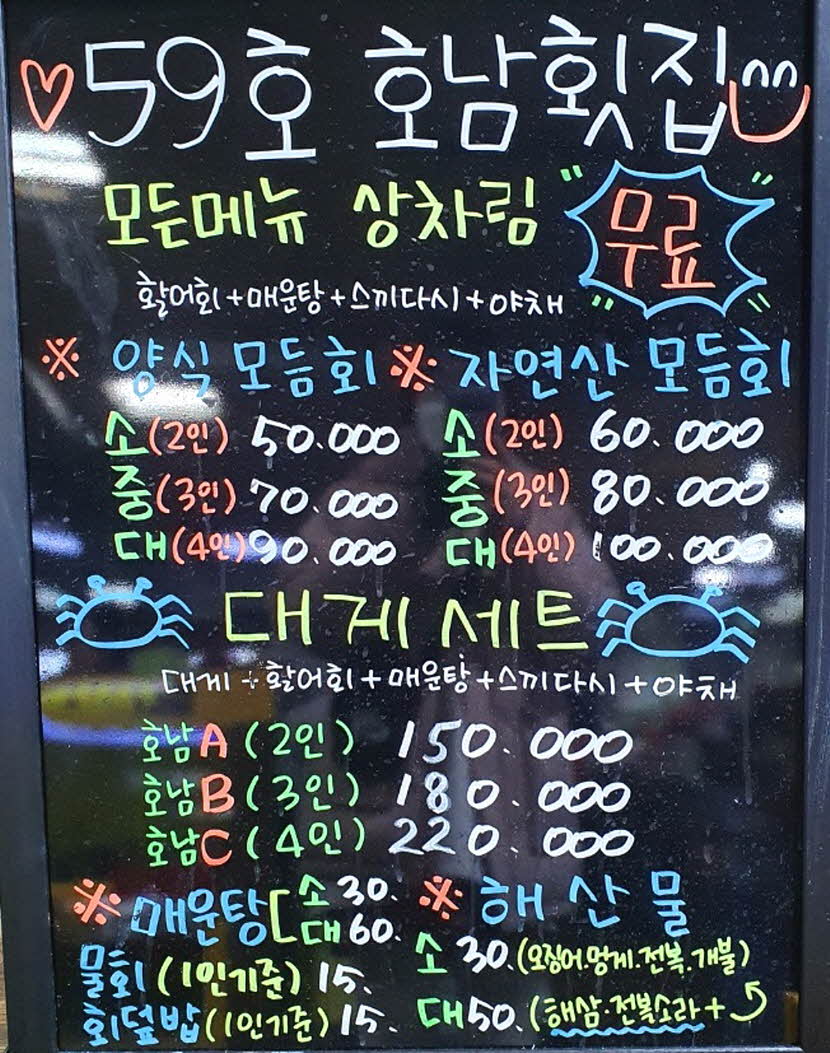 59호 호남횟집
모든메뉴 상차림 무료
활어회+매운탕+스끼다시+야채
※ 양식 모듬회 ※ 자연산 모듬회
소(2인) 50.000 소(2인) 60.000
중(3인) 70.000 중(3인) 80.000
대(4인) 90.000 대(4인) 100.000
대게 세트
대게+활어회+매운탕+스끼다시+야채
호남A (2인) 150.000
호남B (3인) 180.000
호남C (4인) 220.000
※ 매운탕 [ 소 30.
대 60.
물회 (1인기준) 15.
회덮밥 (1인기준) 15.
※ 해산물
소 30. (오징어.멍게.전복.개불)
대 50. (해삼.전복소라+